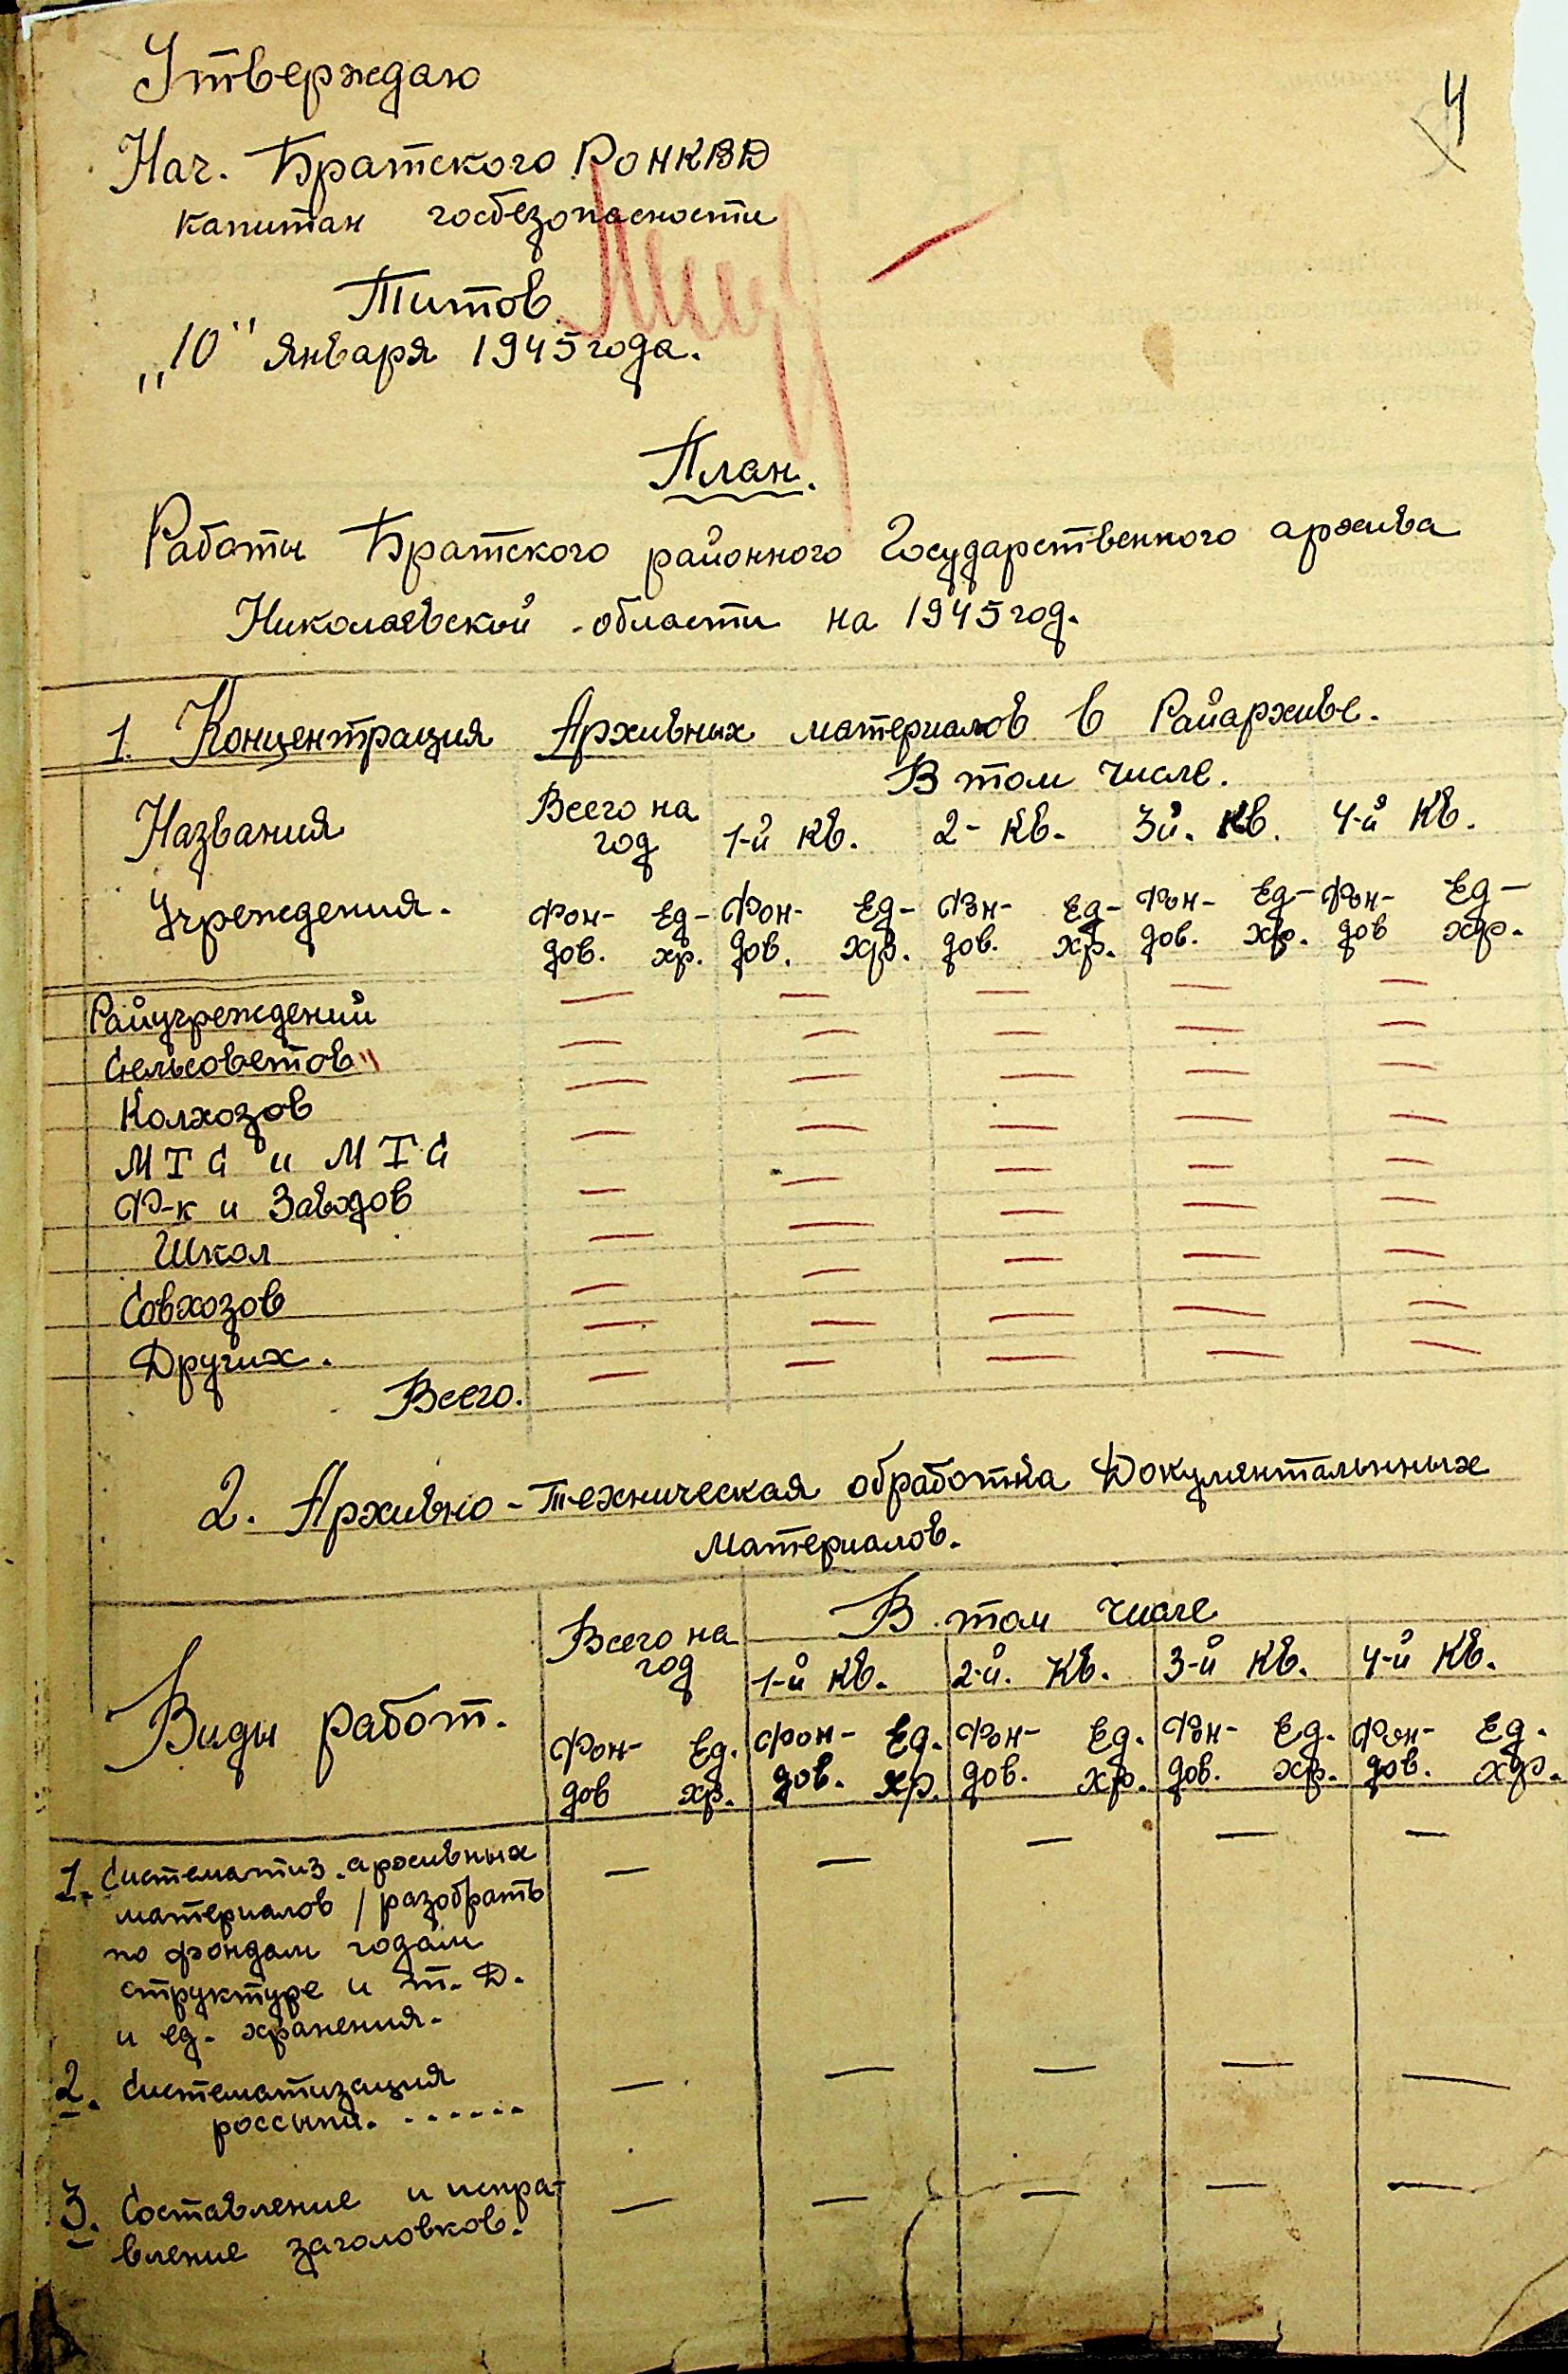 4
Утверждаю
Нач. Братского РОНКВД
капитан госбезопасности
Титов
„10" января 1945 года.
План.
Работы Братского районного Государственного архива
Николаевской области на 1945 год.
1. Концентрация Архивных материалов в Райархиве.
Названия Учреждения.
Всего на год
В том числе.
1-й кв. 2- кв. 3й. кв. 4-й кв.
Фон- Ед- Фон- Ед- Фон- Ед- Фон- Ед- Фон- Ед-
дов. хр. дов. хр. дов. хр. дов. хр. дов хр.
Райучреждений — — — — —
Сельсоветов" — — — — —
Колхозов — — — — —
МТС и МТС — — — — —
Ф-к и Заводов — — — — —
Школ — — — — —
Совхозов — — — — —
Других. — — — — —
Всего. — — — — —
2. Архивно-Техническая обработка Документальнных
материалов.
Виды работ.
Всего на год
В том числе
1-й кв. 2-й. кв. 3-й кв. 4-й кв.
Фон- Ед. Фон- Ед. Фон- Ед. Фон- Ед. Фон- Ед.
дов хр. дов. хр. дов. хр. дов. хр. дов. хр.
1. Систематиз. архивных — — — — —
материалов / разобрать
по фондам годам
структуре и т. д.
и ед. хранения.
2. Систематизация — — — — —
россыпи. . . . . . .
3. Составление и испра- — — — — —
вление заголовков.